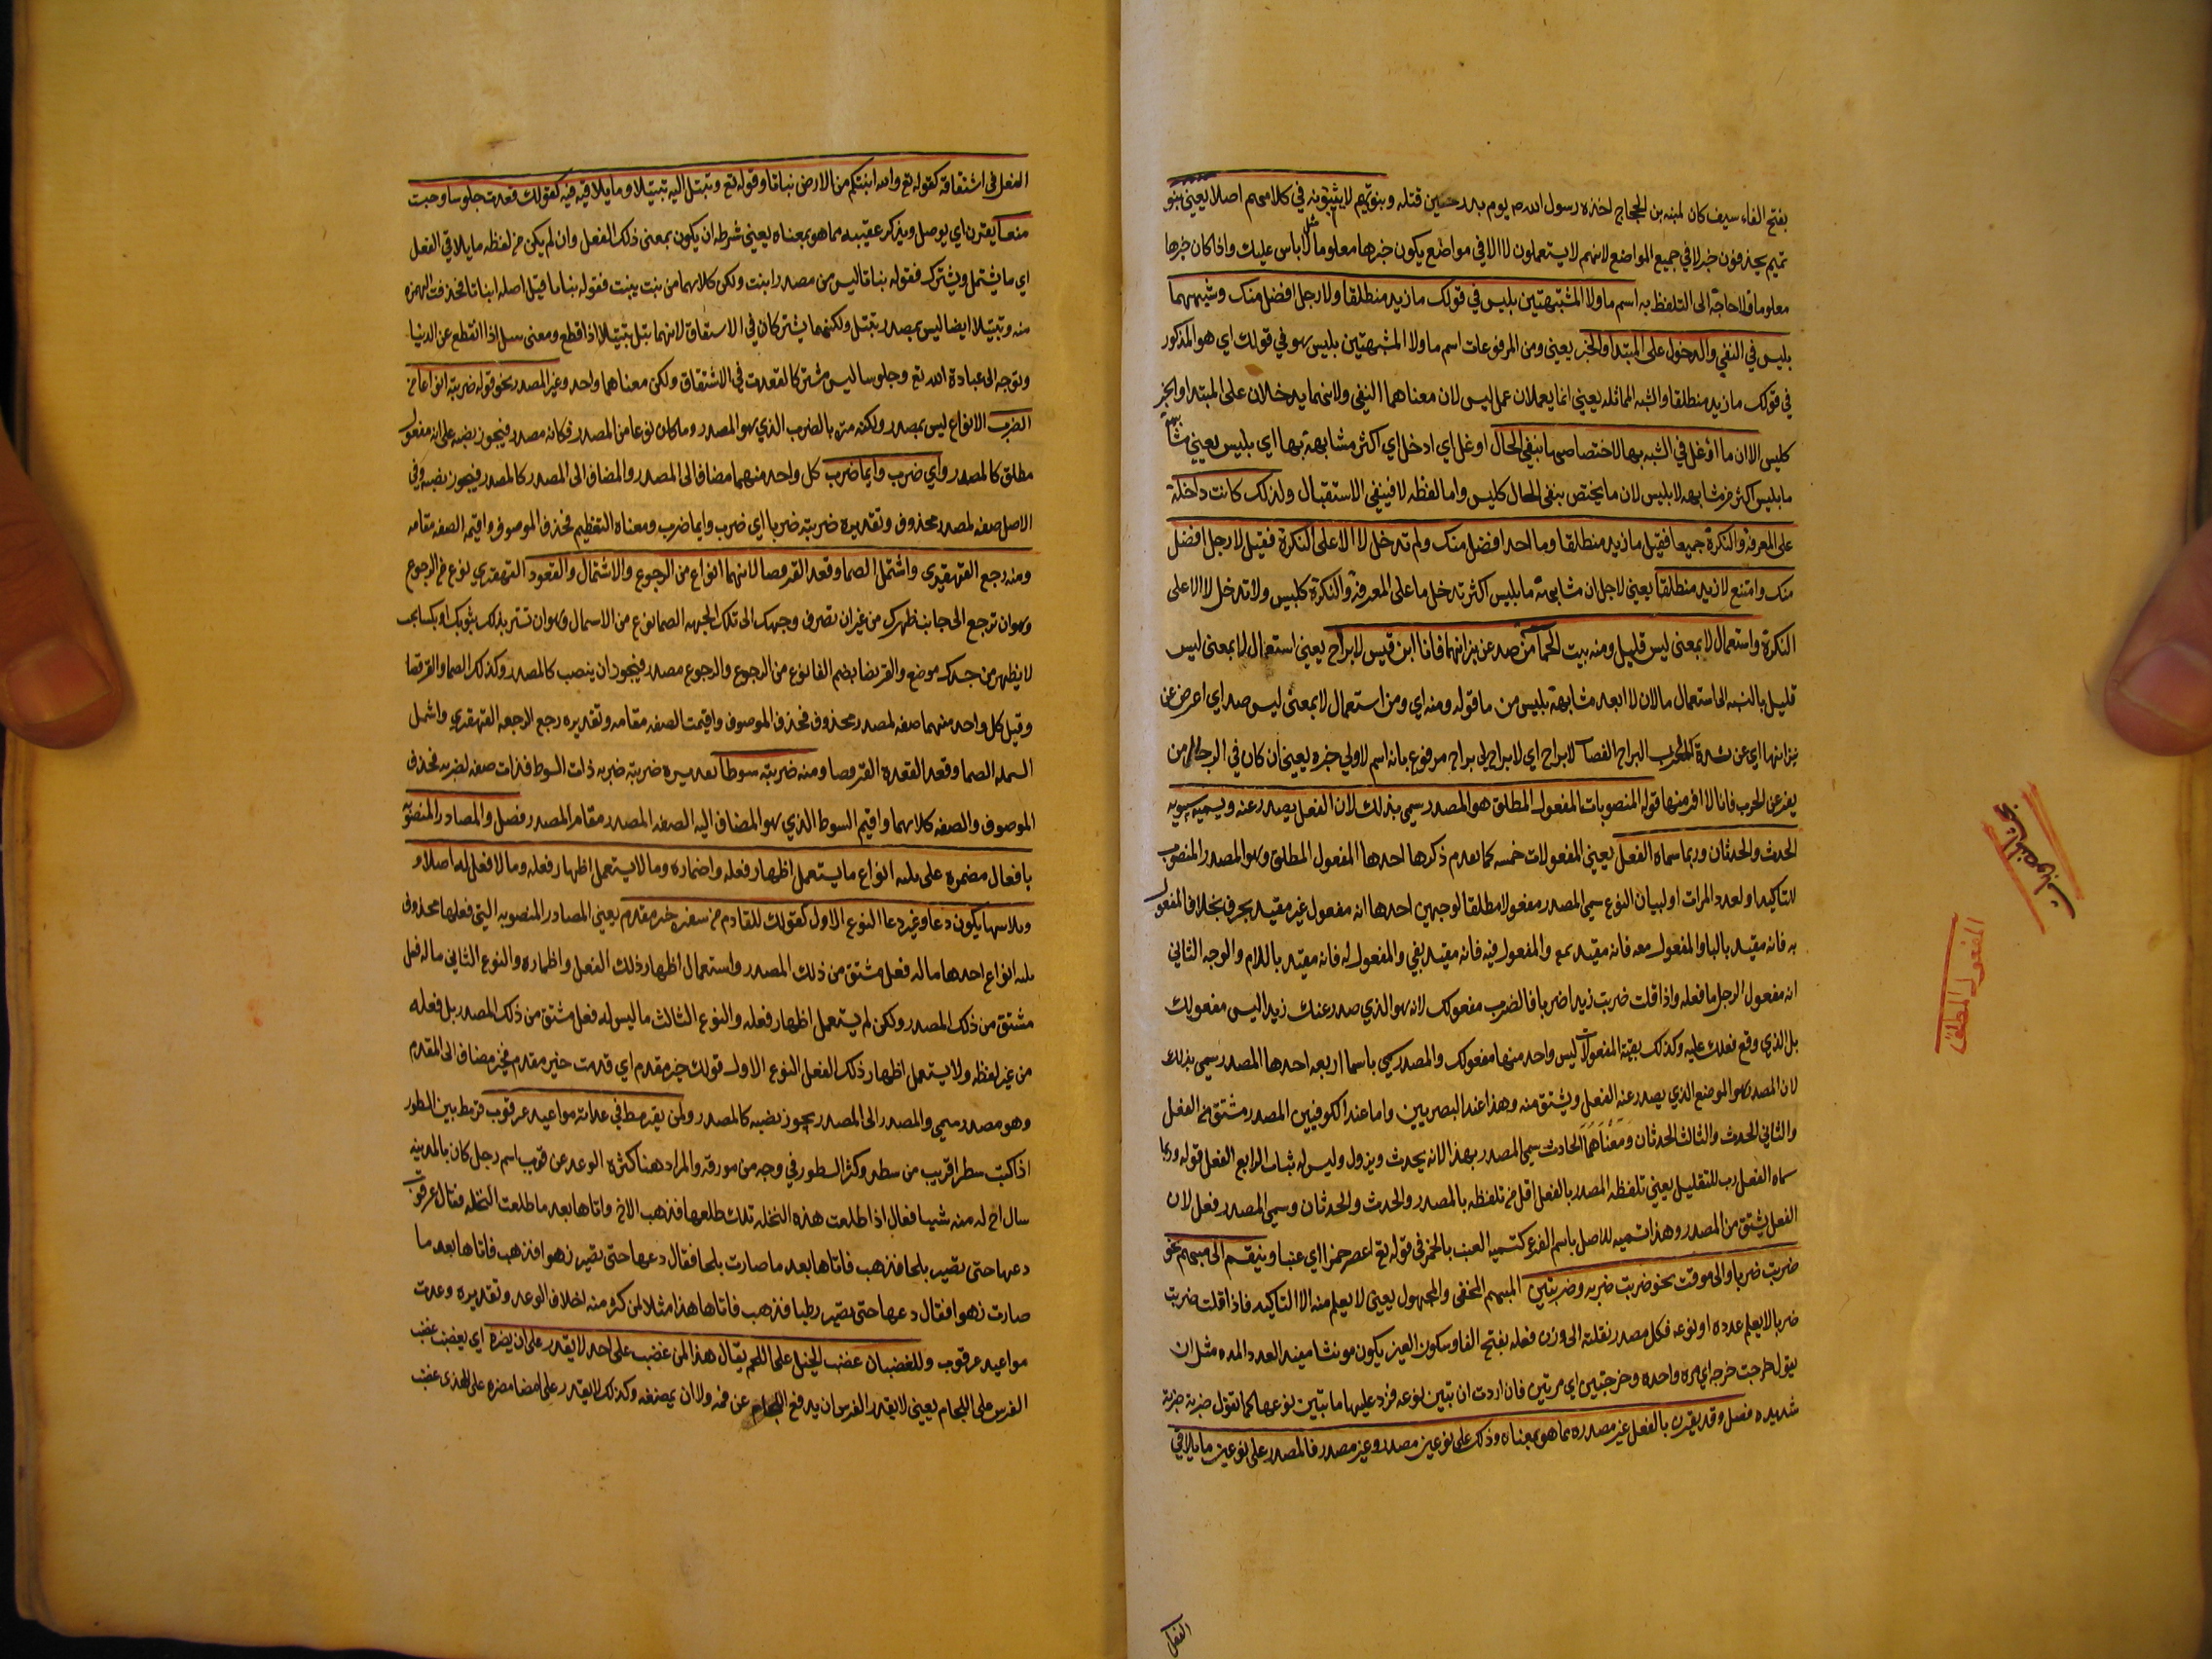 بفتح الفاء سيف كان لمنبه بن الحجاج اخذه رسول الله م يوم بدر حين قتله وبنو تميم لا يثبتونه في كلامهم اصلا يعني بنو
تميم يحذفون خبر لا في جميع المواضع لانهم لا يستعملون لا الا في مواضع يكون خبرها معلوما مثل لا باس عليك واذا كان خبرها
معلوما فلا حاجة الى التلفظ به اسم ما ولا المشبهتين بليس في قولك ما زيد منطلقا ولا رجل افضل منك وشبههما
بليس في النفي والدخول على المبتدا والخبر يعني ومن المرفوعات اسم ما ولا المشبهتين بليس وهو في قولك اي هو المذكور
في قولك ما زيد منطلقا والشبه المماثله يعني انما يعملان عمل ليس لان معناهما النفي ولانهما يدخلان على المبتدا والخبر
كليس الا ان ما أوغل في الشبه بها لاختصاصها بنفي الحال اوغل اي ادخل اي اكثر مشابهة بها اي بليس يعني مشابهة
ما بليس اكثر من مشابهه لا بليس لان ما يختص بنفي الحال كليس واما لفظه لا فينفي الاستقبال ولذلك كانت داخلة
على المعرفة والنكرة جميعا فقيل ما زيد منطلقا وما احد افضل منك ولم تدخل لا الا على النكرة فقيل لا رجل افضل
منك وامتنع لا زيد منطلقا يعني لاجل ان مشابهة ما بليس اكثر تدخل ما على المعرفة والنكرة كليس ولا تدخل لا الا على
النكرة واستعمال لا بمعنى ليس قليل ومنه بيت الحماسة من صد عن نيرانها فانا ابن قيس لا براح يعني استعمال لا بمعنى ليس
قليل بالنسبه الى استعمال ما لان لا ابعد مشابهة بليس من ما قوله ومنه اي ومن استعمال لا بمعنى ليس صد اي اعرض عن
نيرانها اي عن شدة الحرب البراح لا براح اي لا براح لي براح مرفوع بانه اسم لا ولي خبره يعني ان كان في الرجال من
يفر عن الحرب فانا لا افر منها قوله المنصوبات المفعول المطلق هو المصدر سمي بذلك لان الفعل يصدر عنه ويسميه سيبويه
الحدث والحدثان وربما سماه الفعل يعني المفعولات خمسه كما تقدم ذكرها احدها المفعول المطلق وهو المصدر المنصوب
للتاكيد او لعدد المرات او لبيان النوع سمي المصدر مفعولا مطلقا لوجهين احدها انه مفعول غير مقيد بحرف بخلاف المفعول
به فانه مقيد بالبا والمفعول معه فانه مقيد بمع والمفعول فيه فانه مقيد بفي والمفعول له فانه مقيد باللام والوجه الثاني
انه مفعول الرجل ما فعله واذا قلت ضربت زيدا ضربا فالضرب مفعولك لانه هو الذي صدر عنك زيدا ليس مفعولك
بل الذي وقع فعلك عليه وكذلك بقية المفعولات ليس واحد منها مفعولك والمصدر سمي باسما اربعه احدها المصدر سمي بذلك
لان المصدر هو الموضع الذي يصدر عنه الفعل ويشتق منه وهذا عند البصريين واما عند الكوفيين المصدر مشتق من الفعل
والثاني الحدث والثالث الحدثان ومعناهما الحادث سمي المصدر بهذا لانه يحدث ويزول وليس له ثبات الرابع الفعل قوله وربما
سماه الفعل رب للتقليل يعني تلفظه المصدر بالفعل اقل من تلفظه بالمصدر والحدث والحدثان وسمي المصدر فعل لان
الفعل يشتق من المصدر وهذا تسميه للاصل باسم الفرع كتسميه العنب بالخمر في قوله تع اعصر خمرا اي عنبا وينقسم الى مبهم نحو
ضربت ضربا والى موقت نحو ضربت ضربه وضربتين المبهم المخفى والمجهول يعني لا يعلم منه الا التاكيد فاذا قلت ضربت
ضربا لا يعلم عدده او نوعه فكل مصدر نقلته الى وزن فعله بفتح الفا وسكون العين يكون مونثا مفيد العدد المده مثل ان
يقول خرجت خرجه اي مره واحده وخرجتين اي مرتين فان اردت ان تبين نوعه فزد عليها ما تبين نوعها كما تقول ضربته ضربة
شديده فصل وقد يقرن بالفعل غير مصدره مما هو بمعناه وذلك على نوعين مصدر وغير مصدر فالمصدر على نوعين ما يلاقي
الفعل
بحث المنصوبات
المفعول المطلق
الفعل في اشتقاقه كقوله تع والله انبتكم من الارض نباتا وقوله تع وتبتل اليه تبتيلا وما يلاقيه فيه كقولك قعدت جلوسا وحبت
منعا يقرن اي يوصل ويذكر عقيبه مما هو بمعناه يعني شرطه ان يكون بمعنى ذلك الفعل وان لم يكن من لفظه ما يلاقي الفعل
اي ما يشتمل ويشترك فقوله نباتا ليس من مصدر انبت ولكن كلاهما من نبت ينبت فقوله نباتا قيل اصله انباتا فحذفت الهمزه
منه وتبتيلا ايضا ليس بمصدر تبتل ولكنهما يشتركان في الاشتقاق لانهما بتل تبتيلا اذا قطع ومعنى تبتل اذا انقطع عن الدنيا
وتوجه الى عبادة الله تع وجلوسا ليس مشتركا لقعدت في الاشتقاق ولكن معناهما واحد وغير المصدر نحو قوله ضربته انواعا من
الضرب الانواع ليس بمصدر ولكنه بالضرب الذي هو المصدر وما كان نوعا من المصدر فكانه مصدر فيجوز نصبه على انه مفعول
مطلق كالمصدر واي ضرب وايما ضرب كل واحد منهما مضاف الى المصدر والمضاف الى المصدر كالمصدر فيجوز نصبه وفي
الاصل صفه لمصدر محذوف وتقديره ضربته ضربا اي ضرب وايما ضرب ومعناه التعظيم فحذف الموصوف واقيمه الصفه مقامه
ومنه رجع القهقري واشتمل الصما وقعد القرفصا لانهما انواع من الرجوع والاشتمال والقعود القهقري نوع من الرجوع
وهو ان ترجع الى جانب ظهرك من غير ان تصرف وجهك الى تلك الجهه الصما نوع من الاسمال وهو ان تستر بدنك بثوبك او بكسا بحيث
لا يظهر من جسدك موضع والقرفصا بضم الفا نوع من الرجوع والرجوع مصدر فيجوز ان ينصب كالمصدر وكذلك الصما والقرفصا
وقيل كل واحد منهما صفه لمصدر محذوف فحذف الموصوف واقيمت الصفه مقامه وتقديره رجع الرجعه القهقري واشمل
السمله الصما وقعد القعدة القرفصا ومنه ضربته سوطا تقديره ضربته ضربه ذات السوط فذات صفه لضربه فحذف
الموصوف والصفه كلاهما واقيم السوط الذي هو المضاف اليه الصفه المصدر مقام المصدر فصل والمصادر المنصوبه
بافعال مضمره على ثلثه انواع ما يستعمل اظهار فعله واضماره وما لا يستعمل اظهار فعله وما لا فعل له اصلا و
ثلاثتها يكون دعا وغير دعا النوع الاول كقولك للقادم من سفره خير مقدم يعني المصادر المنصوبه التي فعلها محذوف
ثلثه انواع احدها ما له فعل مشتق من ذلك المصدر واستعمال اظهار ذلك الفعل واظماره والنوع الثاني ما له فعل
مشتق من ذلك المصدر ولكن لم يستعمل اظهار فعله والنوع الثالث ما ليس له فعل مشتق من ذلك المصدر بل فعله
من غير لفظه ولا يستعمل اظهار ذلك الفعل النوع الاول قولك خير مقدم اي قدمت خير مقدم فخير مضاف الى المقدم
وهو مصدر ميمي والمصدر الى المصدر يجوز نصبه كالمصدر ولمن يقرمط في عداته مواعيد عرقوب قرمط بين السطور
اذا كتب سطرا قريب من سطر وكثر السطور في وجه من مورقه والمراد هنا كثره الوعد عرقوب اسم رجل كان بالمدينه
سال اخ له منه شيا فقال اذا طلعت هذه النخله تلك طلعها فذهب الاخ واتاها بعد ما طلعت النخله فقال عرقوب
دعها حتى تصير بلحا فذهب فاتاها بعد ما صارت بلحا فقال دعها حتى تصير زهوا فذهب فاتاها بعد ما
صارت زهوا فقال دعها حتى تصير رطبا فذهب فاتاها هذا مثلا لمن كثر منه اخلاف الوعد وتقديره وعدت
مواعيد عرقوب وللغضبان غضب الخيل على اللجم يقال هذا لمن غضب على احد لا يقدر على ان يضره اي يغضب غضب
الفرس على اللجام يعني لا يقدر الفرس ان يدفع اللجام عن فمه ولا ان يمضغه وكذلك لا يقدر على امضا مضره على الذى غضب